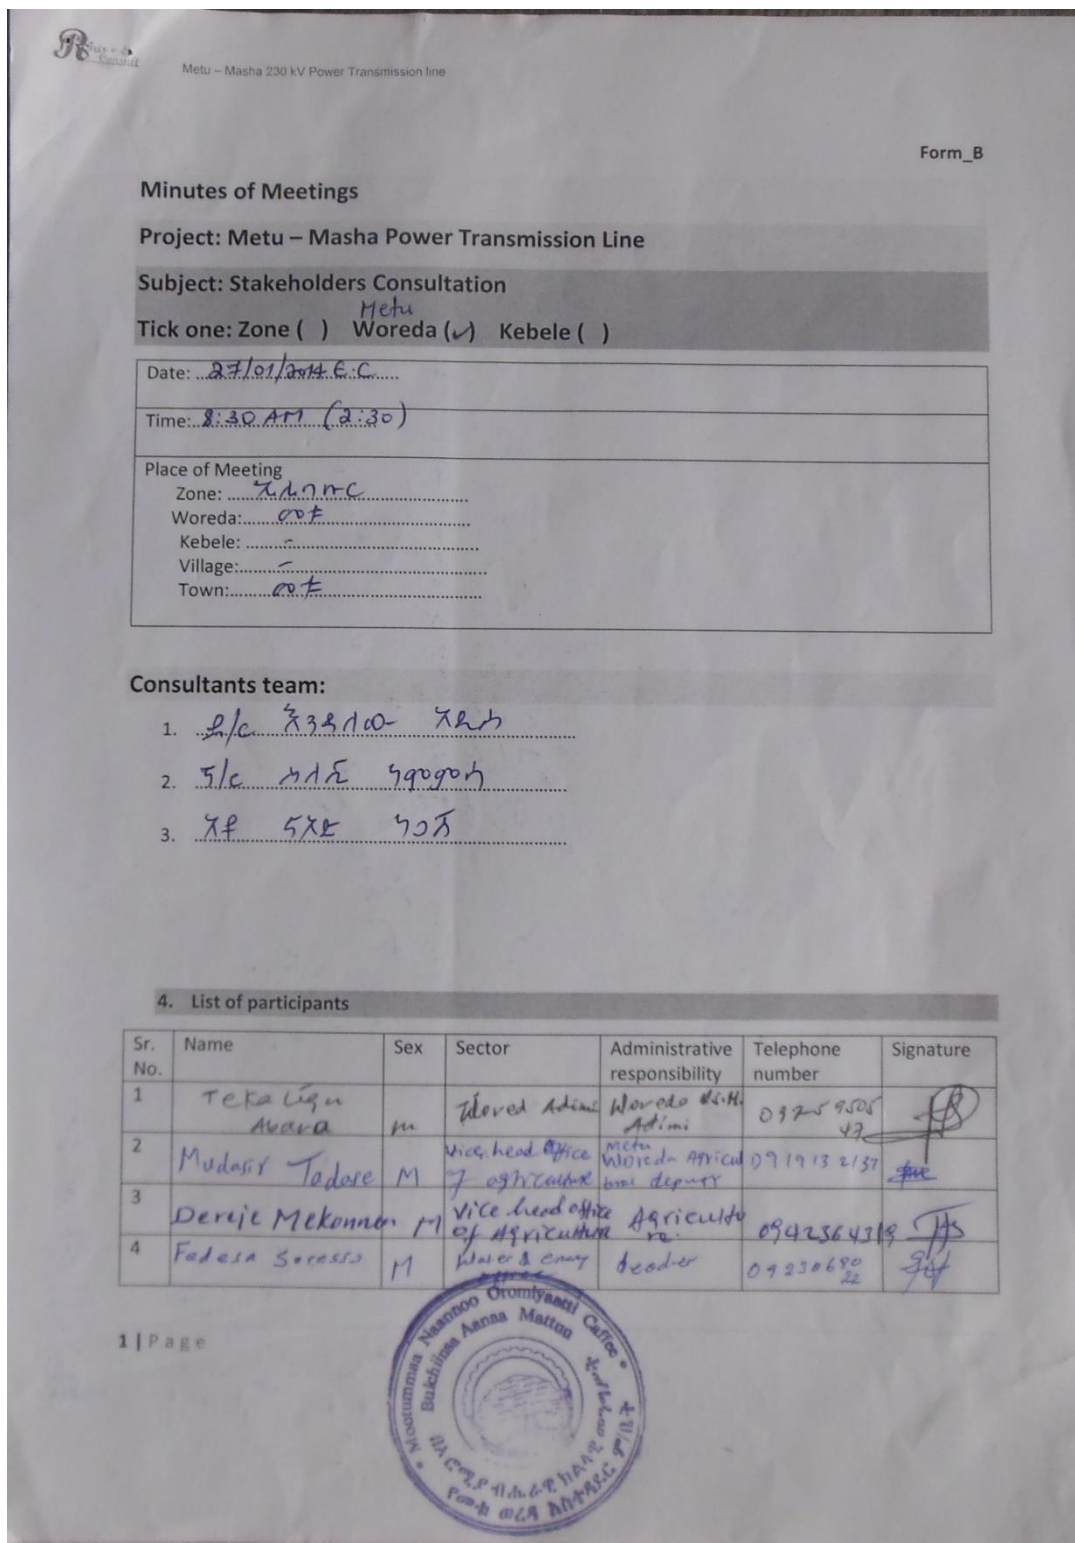 Metu – Masha 230 kV Power Transmission line
Form_B
Minutes of Meetings
Project: Metu – Masha Power Transmission Line
Subject: Stakeholders Consultation
Metu
Tick one: Zone ( ) Woreda (✓) Kebele ( )
Date: 27/01/2014 E.C.
Time: 8:30 AM (2:30)
Place of Meeting
Zone: ኢሊባቡር
Woreda: መቱ
Kebele: -
Village: -
Town: መቱ
Consultants team:
1. ዶ/ር እንዳለው
2.
3.
4. List of participants
Sr. No. Name Sex Sector Administrative responsibility Telephone number Signature
1 Tekalign Abara m Woreda
2 Mudasir Tadase M Vice head office of agriculture Metu Woreda Agricultural deputy 0919132137
3 Dereje Mekonnen M Vice head office of Agriculture Agriculture 0942364319
4 Fadesa Soressa M Water &
1 | Page
Mootummaa Naannoo Oromiyaatti Caffee
Bulchiinsa Aanaa Mattuu
የመቱ ወረዳ አስተዳደር ም/ቤት